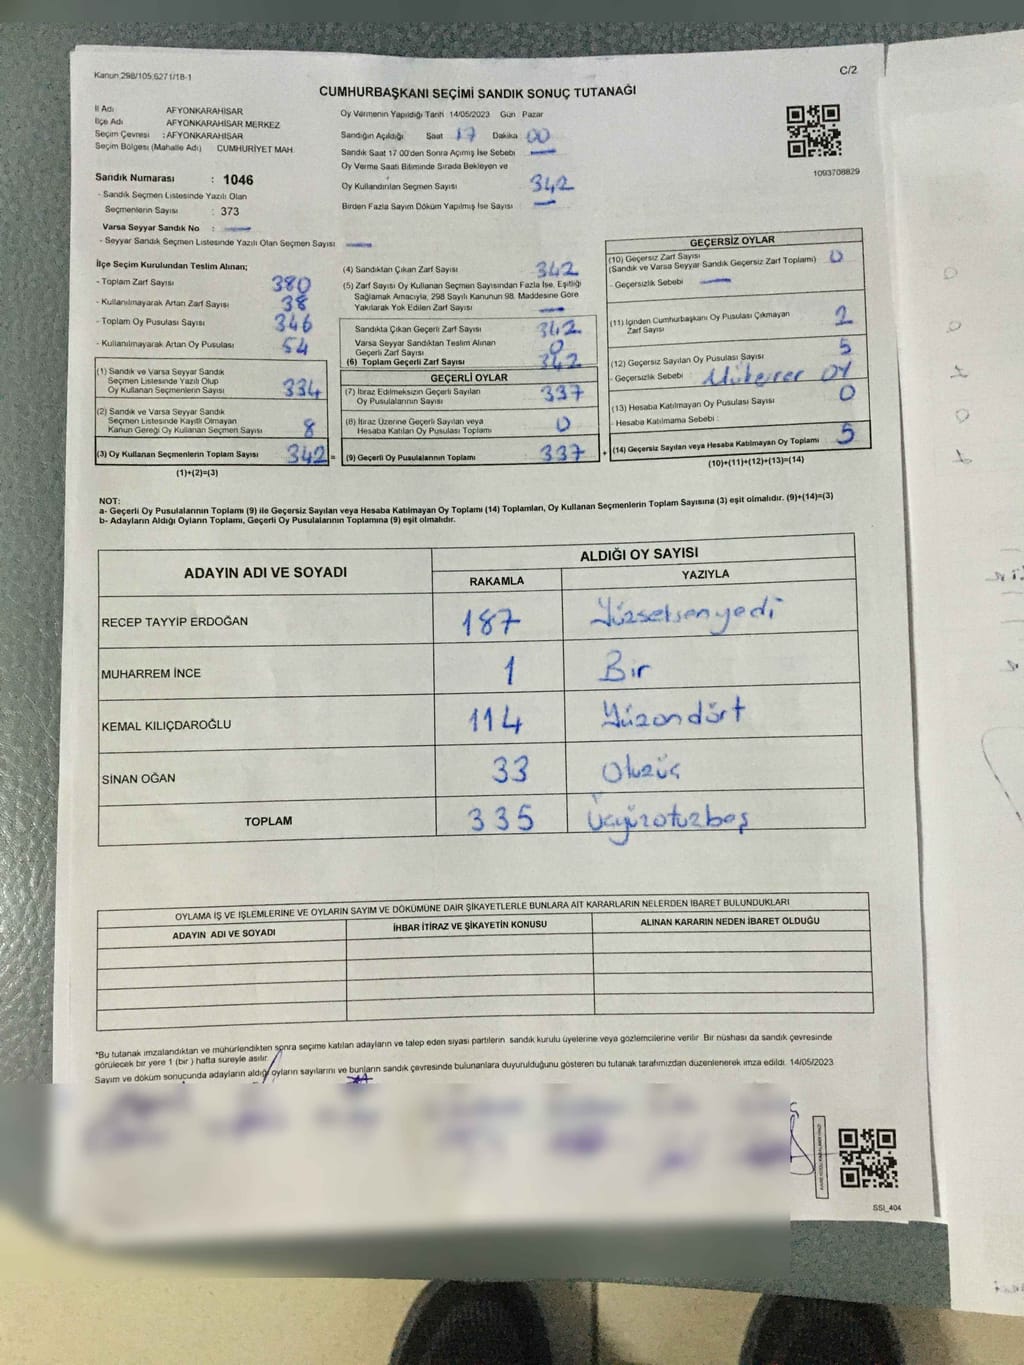 Kanun 298/105,6271/18-1
C/2
CUMHURBAŞKANI SEÇİMİ SANDIK SONUÇ TUTANAĞI
İl Adı AFYONKARAHİSAR
İlçe Adı AFYONKARAHİSAR MERKEZ
Seçim Çevresi : AFYONKARAHİSAR
Seçim Bölgesi (Mahalle Adı) CUMHURİYET MAH.
Sandık Numarası : 1046
- Sandık Seçmen Listesinde Yazılı Olan
Seçmenlerin Sayısı : 373
Varsa Seyyar Sandık No : —
- Seyyar Sandık Seçmen Listesinde Yazılı Olan Seçmen Sayısı —
Oy Vermenin Yapıldığı Tarih 14/05/2023 Gün Pazar
Sandığın Açıldığı Saat 17 Dakika 00
Sandık Saat 17 00'den Sonra Açmış İse Sebebi —
Oy Verme Saati Bitiminde Sırada Bekleyen ve
Oy Kullandırılan Seçmen Sayısı 342
Birden Fazla Sayım Döküm Yapılmış İse Sayısı —
1093708829
İlçe Seçim Kurulundan Teslim Alınan;
- Toplam Zarf Sayısı 380
- Kullanılmayarak Artan Zarf Sayısı 38
- Toplam Oy Pusulası Sayısı 346
- Kullanılmayarak Artan Oy Pusulası 54
(1) Sandık ve Varsa Seyyar Sandık
Seçmen Listesinde Yazılı Olup
Oy Kullanan Seçmenlerin Sayısı 334
(2) Sandık ve Varsa Seyyar Sandık
Seçmen Listesinde Kayıtlı Olmayan
Kanun Gereği Oy Kullanan Seçmen Sayısı 8
(3) Oy Kullanan Seçmenlerin Toplam Sayısı 342 =
(1)+(2)=(3)
(4) Sandıktan Çıkan Zarf Sayısı 342
(5) Zarf Sayısı Oy Kullanan Seçmen Sayısından Fazla İse, Eşitliği
Sağlamak Amacıyla, 298 Sayılı Kanunun 98. Maddesine Göre
Yakılarak Yok Edilen Zarf Sayısı —
Sandıkta Çıkan Geçerli Zarf Sayısı 342
Varsa Seyyar Sandıktan Teslim Alınan
Geçerli Zarf Sayısı 0
(6) Toplam Geçerli Zarf Sayısı 342
GEÇERLİ OYLAR
(7) İtiraz Edilmeksizin Geçerli Sayılan
Oy Pusulalarının Sayısı 337
(8) İtiraz Üzerine Geçerli Sayılan veya
Hesaba Katılan Oy Pusulası Toplamı 0
(9) Geçerli Oy Pusulalarının Toplamı 337 +
GEÇERSİZ OYLAR
(10) Geçersiz Zarf Sayısı
(Sandık ve Varsa Seyyar Sandık Geçersiz Zarf Toplamı) 0
- Geçersizlik Sebebi —
(11) İçinden Cumhurbaşkanı Oy Pusulası Çıkmayan
Zarf Sayısı 2
(12) Geçersiz Sayılan Oy Pusulası Sayısı 5
- Geçersizlik Sebebi Mükerrer oy
(13) Hesaba Katılmayan Oy Pusulası Sayısı 0
- Hesaba Katılmama Sebebi :
(14) Geçersiz Sayılan veya Hesaba Katılmayan Oy Toplamı 5
(10)+(11)+(12)+(13)=(14)
NOT:
a- Geçerli Oy Pusulalarının Toplamı (9) ile Geçersiz Sayılan veya Hesaba Katılmayan Oy Toplamı (14) Toplamları, Oy Kullanan Seçmenlerin Toplam Sayısına (3) eşit olmalıdır. (9)+(14)=(3)
b- Adayların Aldığı Oyların Toplamı, Geçerli Oy Pusulalarının Toplamına (9) eşit olmalıdır.
ADAYIN ADI VE SOYADI
ALDIĞI OY SAYISI
RAKAMLA YAZIYLA
RECEP TAYYİP ERDOĞAN 187 Yüzseksenyedi
MUHARREM İNCE 1 Bir
KEMAL KILIÇDAROĞLU 114 Yüzondört
SİNAN OĞAN 33 Otuzüç
TOPLAM 335 Üçyüzotuzbeş
OYLAMA İŞ VE İŞLEMLERİNE VE OYLARIN SAYIM VE DÖKÜMÜNE DAİR ŞİKAYETLERLE BUNLARA AİT KARARLARIN NELERDEN İBARET BULUNDUKLARI
ADAYIN ADI VE SOYADI İHBAR İTİRAZ VE ŞİKAYETİN KONUSU ALINAN KARARIN NEDEN İBARET OLDUĞU
*Bu tutanak imzalandıktan ve mühürlendikten sonra seçime katılan adayların ve talep eden siyasi partilerin sandık kurulu üyelerine veya gözlemcilerine verilir. Bir nüshası da sandık çevresinde
görülecek bir yere 1 (bir) hafta süreyle asılır.
Sayım ve döküm sonucunda adayların aldığı oyların sayılarını ve bunların sandık çevresinde bulunanlara duyurulduğunu gösteren bu tutanak tarafımızdan düzenlenerek imza edildi. 14/05/2023
SSI_404